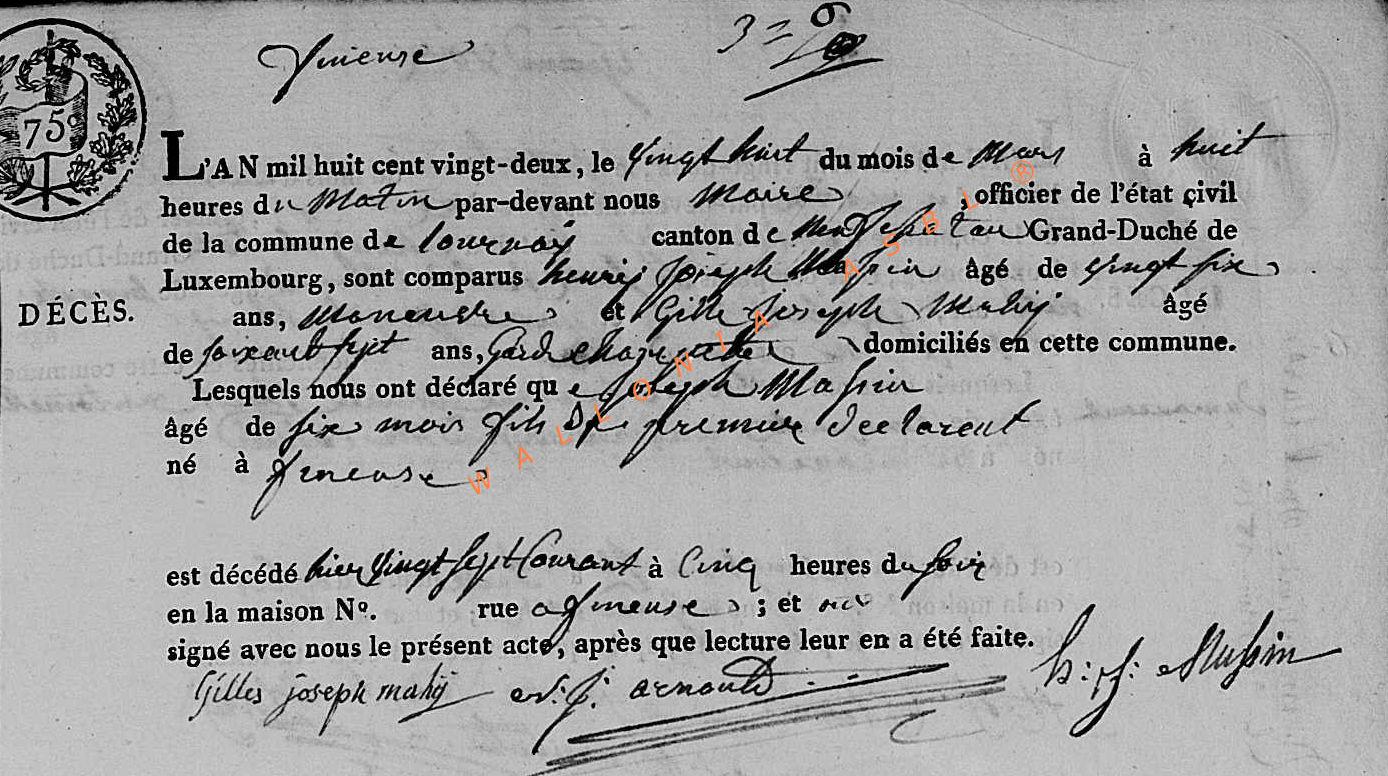 3 =
75c
L'AN mil huit cent vingt-deux, le vingt huit du mois de Mars à huit
heures du Matin par-devant nous Maire, officier de l'état çivil
de la commune de Tournay canton de Neufchateau Grand-Duché de
Luxembourg, sont comparus henry Joseph Massin âgé de vingt six
DÉCÈS.
ans, Manoeuvre et Gille Joseph Mahy âgé
de soixante sept ans, Garde champetre domiciliés en cette commune.
Lesquels nous ont déclaré que Joseph Massin
âgé de six mois fils du premier declarent
né à
est décédé hier vingt sept Courant à Cinq heures du soir
en la maison No. rue a ; et ont
signé avec nous le présent acte, après que lecture leur en a été faite.
Gilles joseph mahy J. arnould h: j: Massin
WALLONIA ASBL ®